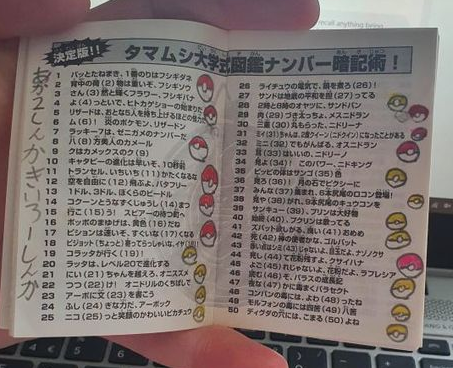 決定版!!
タマムシ大学式図鑑ナンバー暗記術!
あか2しんかきいろ しんか
1 パッとたねまき、1番のりはフシギダネ
2 背中の荷(2)物は重いぞ、フシギソウ
3 さん(3)然と輝くフラワー、フシギバナ
4 よ(4)っといで、ヒトカゲショーの始まりだ
5 リザードは、おとなら5人を持ち上げるほどの怪力だ
6 ム(6)! 炎のポケモン、リザードン
7 ラッキー7は、ゼニガメのナンバーだ
8 八(8)方美人のカメール
9 クはカメックスのク(9)
10 キャタピーの進化は早いぞ、10秒前
11 トランセル、いちいち(11)かたくなるな
12 空を自由に(12)飛ぶよ、バタフリー
13 1ドル、3ドル、ぼくらのビードル
14 コクーンとうなずくじゅうし(14)まつ
15 行こ(15)う! スピアーの待つ町へ
16 ポッポのまゆげは、黄色(16)だね
17 ピジョンは速いぞ、すぐいな(17)くなる
18 ピジョット(ちょっと)寄ってらっしゃいな、イヤ(18)!
19 コラッタが行く(19)!
20 ラッタは、レベル20で進化する
21 にい(21)ちゃんを越えろ、オニスズメ
22 つつ(22)け! オニドリルのくちばしで
23 アーボに文(23)を書こう
24 ふし(24)ぎな力だ、アーボック
25 ニコ(25)っと笑顔のかわいいピカチュウ
26 ライチュウの電気で、鍋を煮ろ(26)!
27 サンドは地面の平和を担(27)ってる
28 2時と8時のオヤツに、サンドパン
29 肉(29)づき太っちょ、メスニドラン
30 三重(30)丸もらった、ニドリーナ
31 ミイ(31)ちゃんは、2度クイーン(ニドクイン)になったことがある
32 ミニ(32)でもオスだよ、オスニドラン
33 耳(33)はいいの、ニドリーノ
34 見よ(34)! このパワー、ニドキング
35 ピッピの体はサンゴ(35)色
36 見ろ(36)! 月の石でピクシーに
37 みんな(37)驚きた、6本尻尾のロコン登場!
38 見や(38)がれ、9本尻尾のキュウコンを
39 サンキュー(39)、プリンは大好物
40 始終(40)、プクリンは歌ってる
41 ズバット欲しがる、良い(41)おめめ
42 死(42)神の使者かな、ゴルバット
44 死し(44)て花粉残す、クサイハナ
46 読む(46)ぞ、パラスの成長記
47 夜な(47)かに蠢くパラセクト
48 コンパンの毒には、よわ(48)ったね
49 モルフォンの毒には四苦(49)八苦
50 ディグダの穴には、こまる(50)よね